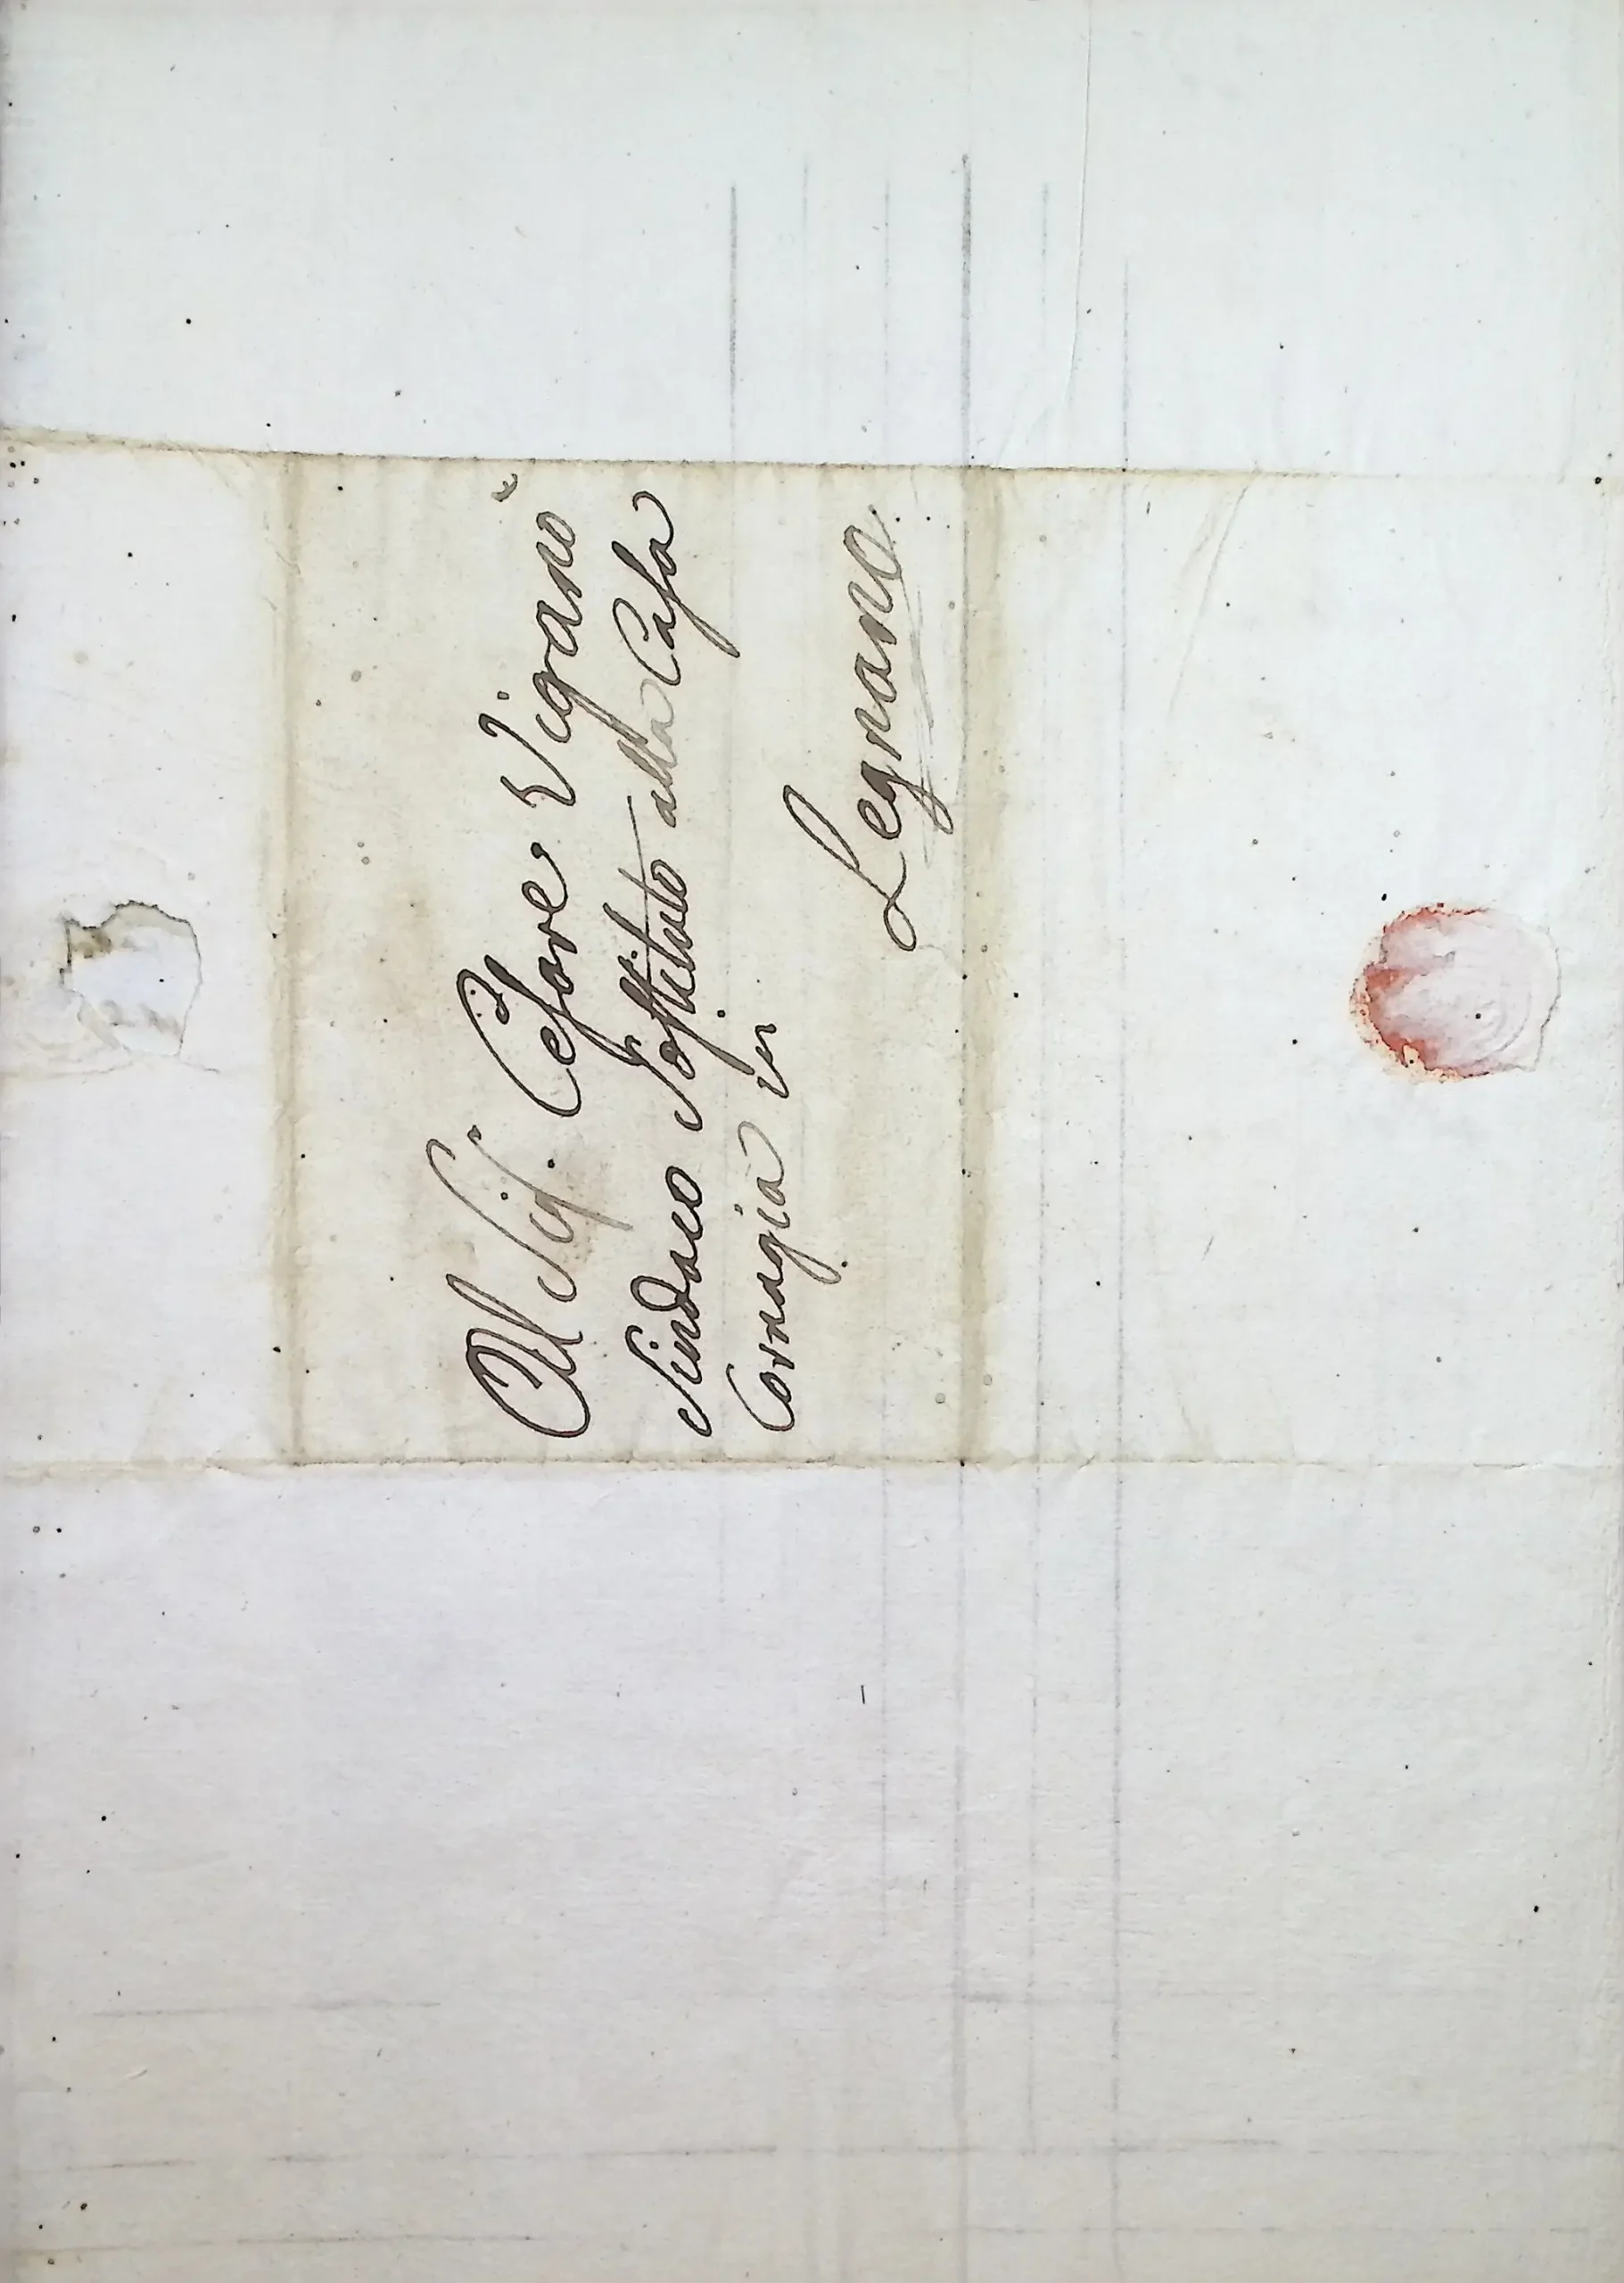 Al Sig.r Cesare Viganò
Sindaco Sostituto alla Casa
Cornagia in
Legnano